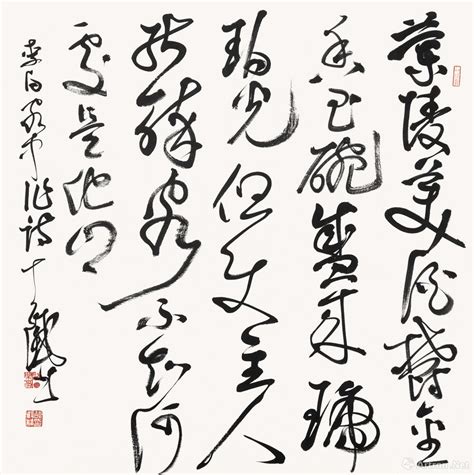 蘭陵美酒鬱金
香玉碗盛来琥
珀光但使主人
能醉客不知何
處是他鄉
李白客中作詩
Artron.Net